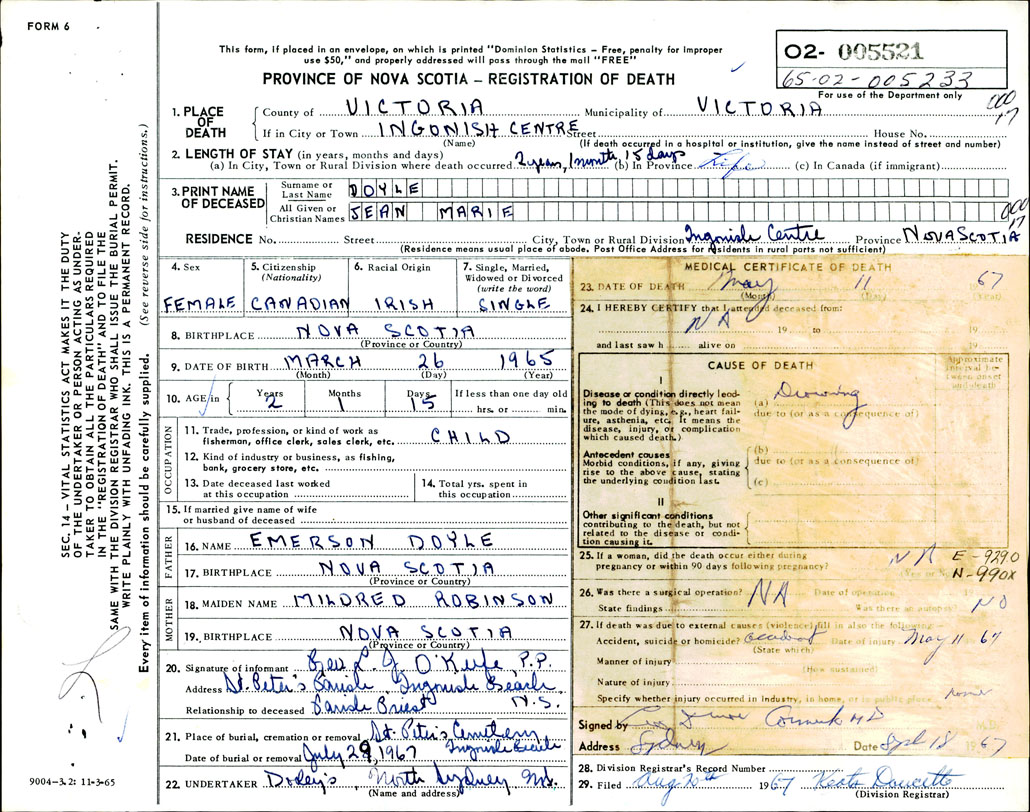 FORM 6
This form, if placed in an envelope, on which is printed "Dominion Statistics – Free, penalty for improper
use $50," and properly addressed will pass through the mail "FREE"
PROVINCE OF NOVA SCOTIA – REGISTRATION OF DEATH
O2- 005521
65-02-005233
For use of the Department only
1. PLACE OF DEATH
County of VICTORIA Municipality of VICTORIA
000
17
If in City or Town INGONISH CENTRE Street House No.
(Name) (If death occurred in a hospital or institution, give the name instead of street and number)
2. LENGTH OF STAY (in years, months and days)
(a) In City, Town or Rural Division where death occurred 2 years, 1 month, 15 days (b) In Province Life (c) In Canada (if immigrant)
3. PRINT NAME OF DECEASED
Surname or Last Name DOYLE
All Given or Christian Names JEAN MARIE
000
17
RESIDENCE No. Street City, Town or Rural Division Ingonish Centre Province NOVA SCOTIA
(Residence means usual place of abode. Post Office Address for residents in rural parts not sufficient)
SEC. 14 – VITAL STATISTICS ACT MAKES IT THE DUTY
OF THE UNDERTAKER OR PERSON ACTING AS UNDER-
TAKER TO OBTAIN ALL THE PARTICULARS REQUIRED
IN THE "REGISTRATION OF DEATH" AND TO FILE THE
SAME WITH THE DIVISION REGISTRAR WHO SHALL ISSUE THE BURIAL PERMIT.
WRITE PLAINLY WITH UNFADING INK. THIS IS A PERMANENT RECORD.
Every item of information should be carefully supplied. (See reverse side for instructions.)
4. Sex
FEMALE
5. Citizenship
(Nationality)
CANADIAN
6. Racial Origin
IRISH
7. Single, Married,
Widowed or Divorced
(write the word)
SINGLE
8. BIRTHPLACE NOVA SCOTIA
(Province or Country)
9. DATE OF BIRTH MARCH 26 1965
(Month) (Day) (Year)
10. AGE in Years 2 Months 1 Days 15 If less than one day old
hrs. or min.
OCCUPATION
11. Trade, profession, or kind of work as
fisherman, office clerk, sales clerk, etc. CHILD
12. Kind of industry or business, as fishing,
bank, grocery store, etc.
13. Date deceased last worked
at this occupation
14. Total yrs. spent in
this occupation
15. If married give name of wife
or husband of deceased
FATHER
16. NAME EMERSON DOYLE
17. BIRTHPLACE NOVA SCOTIA
(Province or Country)
MOTHER
18. MAIDEN NAME MILDRED ROBINSON
19. BIRTHPLACE NOVA SCOTIA
(Province or Country)
20. Signature of informant Rev. L. J. O'Keefe, P.P.
Address St. Peter's Parish, Ingonish Beach,
Relationship to deceased Parish Priest N.S.
21. Place of burial, cremation or removal St. Peter's Cemetery
Ingonish Beach
Date of burial or removal July 29, 1967
22. UNDERTAKER Dooley's, North Sydney N.S.
(Name and address)
9004-3.2: 11-3-65
MEDICAL CERTIFICATE OF DEATH
23. DATE OF DEATH May 11 67
(Month) (Day) (Year)
24. I HEREBY CERTIFY that I attended deceased from:
NA 19 to 19
and last saw h alive on 19
CAUSE OF DEATH
Approximate
interval be-
tween onset
and death
I
Disease or condition directly lead-
ing to death (This does not mean
the mode of dying, e.g., heart fail-
ure, asthenia, etc. It means the
disease, injury, or complication
which caused death.)
(a) Drowning
due to (or as a consequence of)
Antecedent causes
Morbid conditions, if any, giving
rise to the above cause, stating
the underlying condition last.
(b)
due to (or as a consequence of)
(c)
II
Other significant conditions
contributing to the death, but not
related to the disease or condi-
tion causing it.
25. If a woman, did the death occur either during
pregnancy or within 90 days following pregnancy? NA
(Yes or No)
E-9290
N-990X
26. Was there a surgical operation? NA Date of operation 19
State findings Was there an autopsy? NO
27. If death was due to external causes (violence) fill in also the following:
Accident, suicide or homicide? accident Date of injury May 11 67
(State which)
Manner of injury
(How sustained)
Nature of injury
Specify whether injury occurred in industry, in home, or in public place home
Signed by Cormick MD M.D.
Address Sydney Date Sept 18 1967
28. Division Registrar's Record Number
29. Filed Aug 20th 1967 Doucette
(Division Registrar)